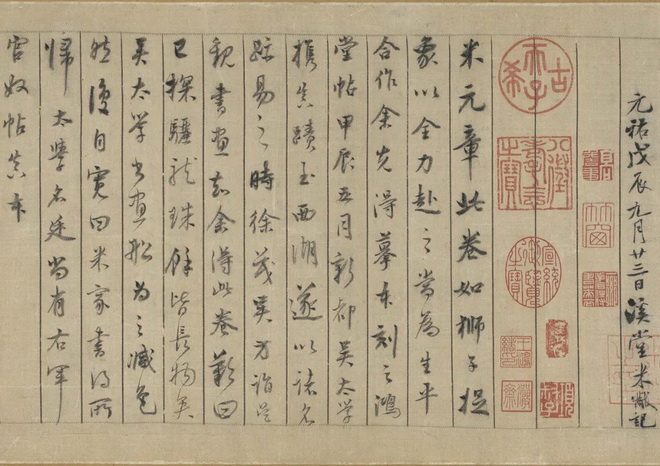 元祐戊辰九月廿三日溪堂米黻記
古希天子
八徵耄念之寶
宣統御覽之寶
米元章此卷如獅子捉
象以全力赴之當為生平
合作余先得摹本刻之鴻
堂帖甲辰五月新都吳太學
攜真蹟至西湖遂以諸名
跡易之時徐茂吳方詣吳
觀書畫知余得此卷歎曰
已探驪龍珠餘皆長物矣
吳太學書畫船為之減色
然後自寬曰米家書得所
歸太學名廷尚有右軍
官奴帖真本